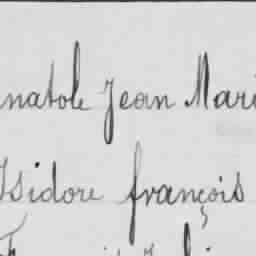 natole Jean Mari
Isidore françois